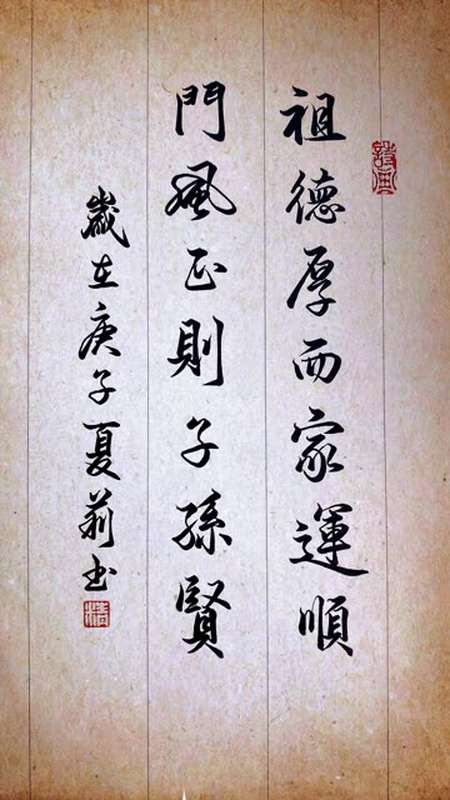 祖德厚而家運順
門風正則子孫賢
歲在庚子夏莉书